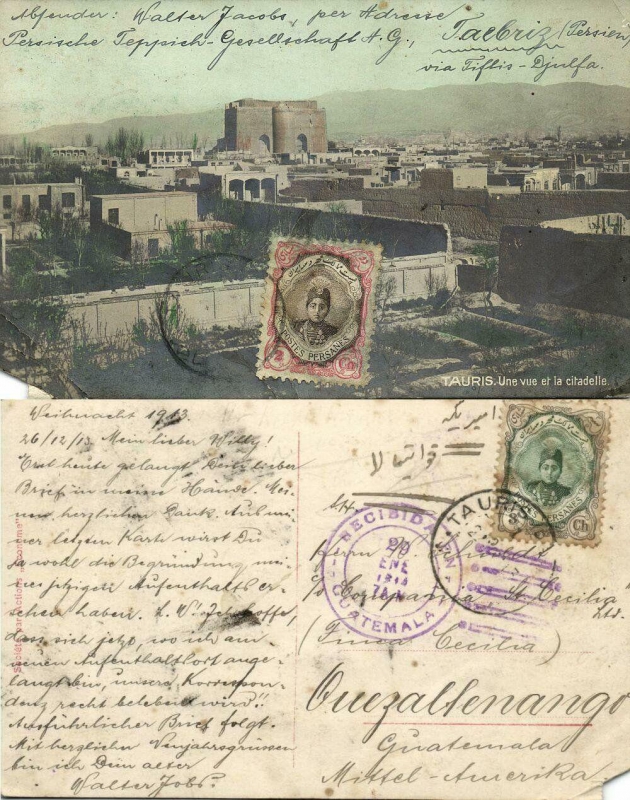 Absender: Walter Jacobs, per Adresse
Persische Teppich-Gesellschaft A.G., Taebriz (Persien)
via Tiflis-Djulfa.
POSTES PERSANES
2 Ch
TAURIS. Une vue et la citadelle
Weihnacht 1913.
26/12/13. Mein lieber Willy!
Erst heute gelangt Dein lieber
Brief in meine Hände. Mei-
nen herzlichen Dank. Aus mei-
ner letzten Karte wirst Du
ja wohl die Begründung mei-
nes jetzigen Aufenthaltes er-
sehen haben. Ich hoffe,
dass sich jetzt, wo ich am
neuen Aufenthaltsort ange-
langt bin, unsere Korrespon-
denz recht beleben wird!!
Ausführlicher Brief folgt.
Mit herzlichen Neujahrsgrüssen
bin ich Dein alter
Walter Jobs.
امریکه
قواتیمالا
Ch
TAURIS
RECIBIDA EN
ENE
1914
GUATEMALA
Herrn
c/o Compania Sta Cecilia
Ltd.
(Finca Cecilia)
Quezaltenango
Guatemala
Mittel-Amerika.